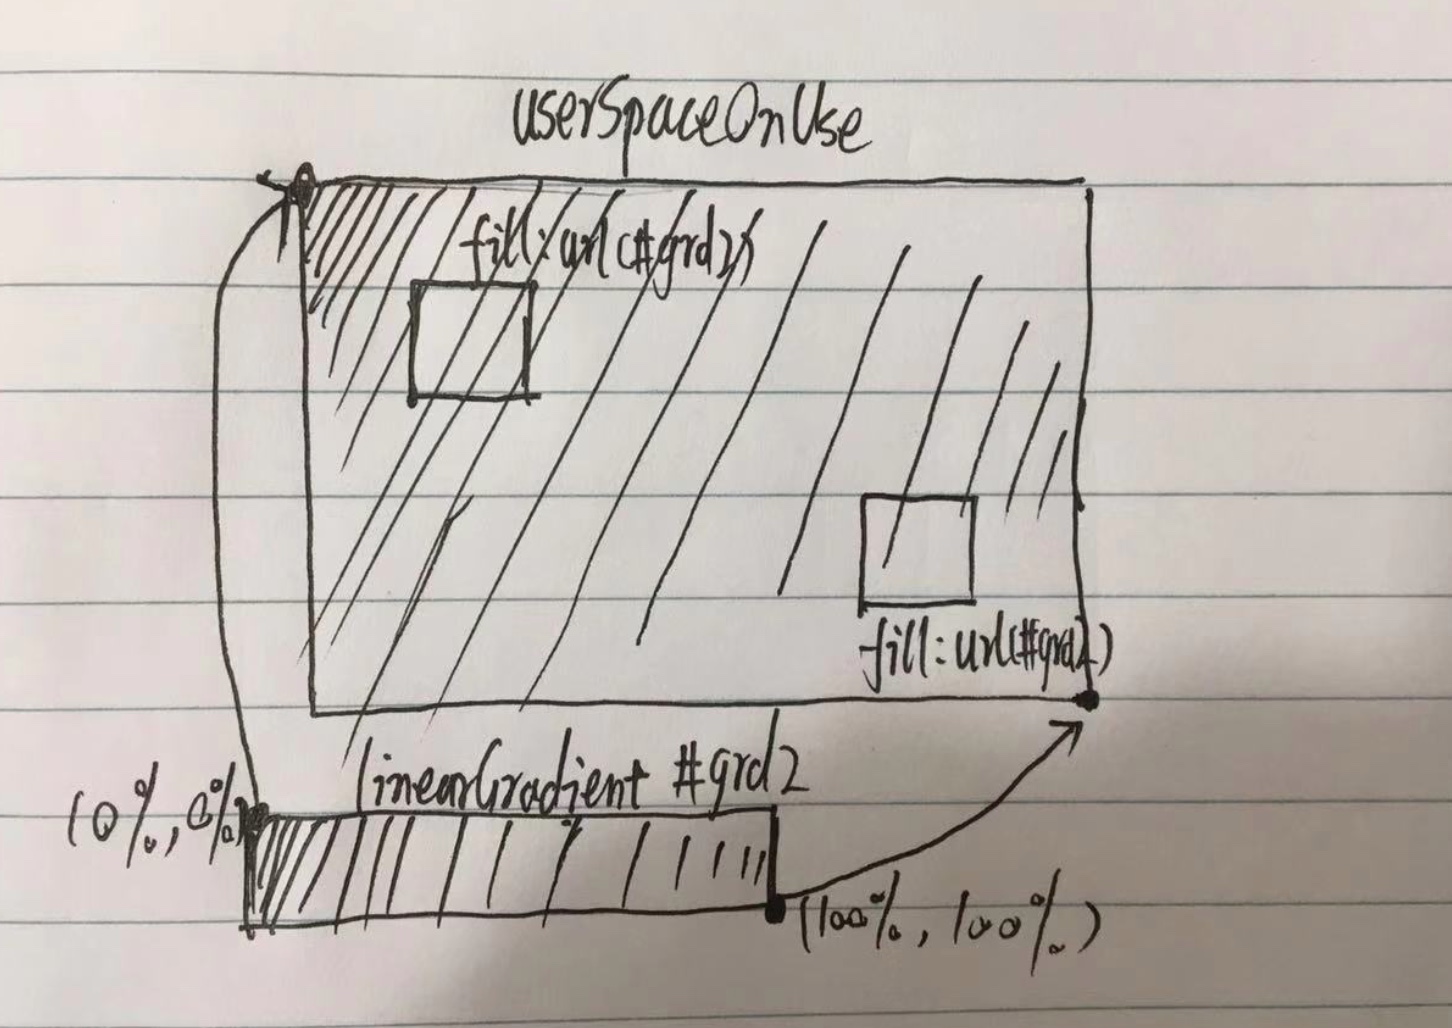 userSpaceOnUse
fill:url(#grd2)
fill:url(#grd2)
linearGradient #grd2
(0%, 0%)
(100%, 100%)